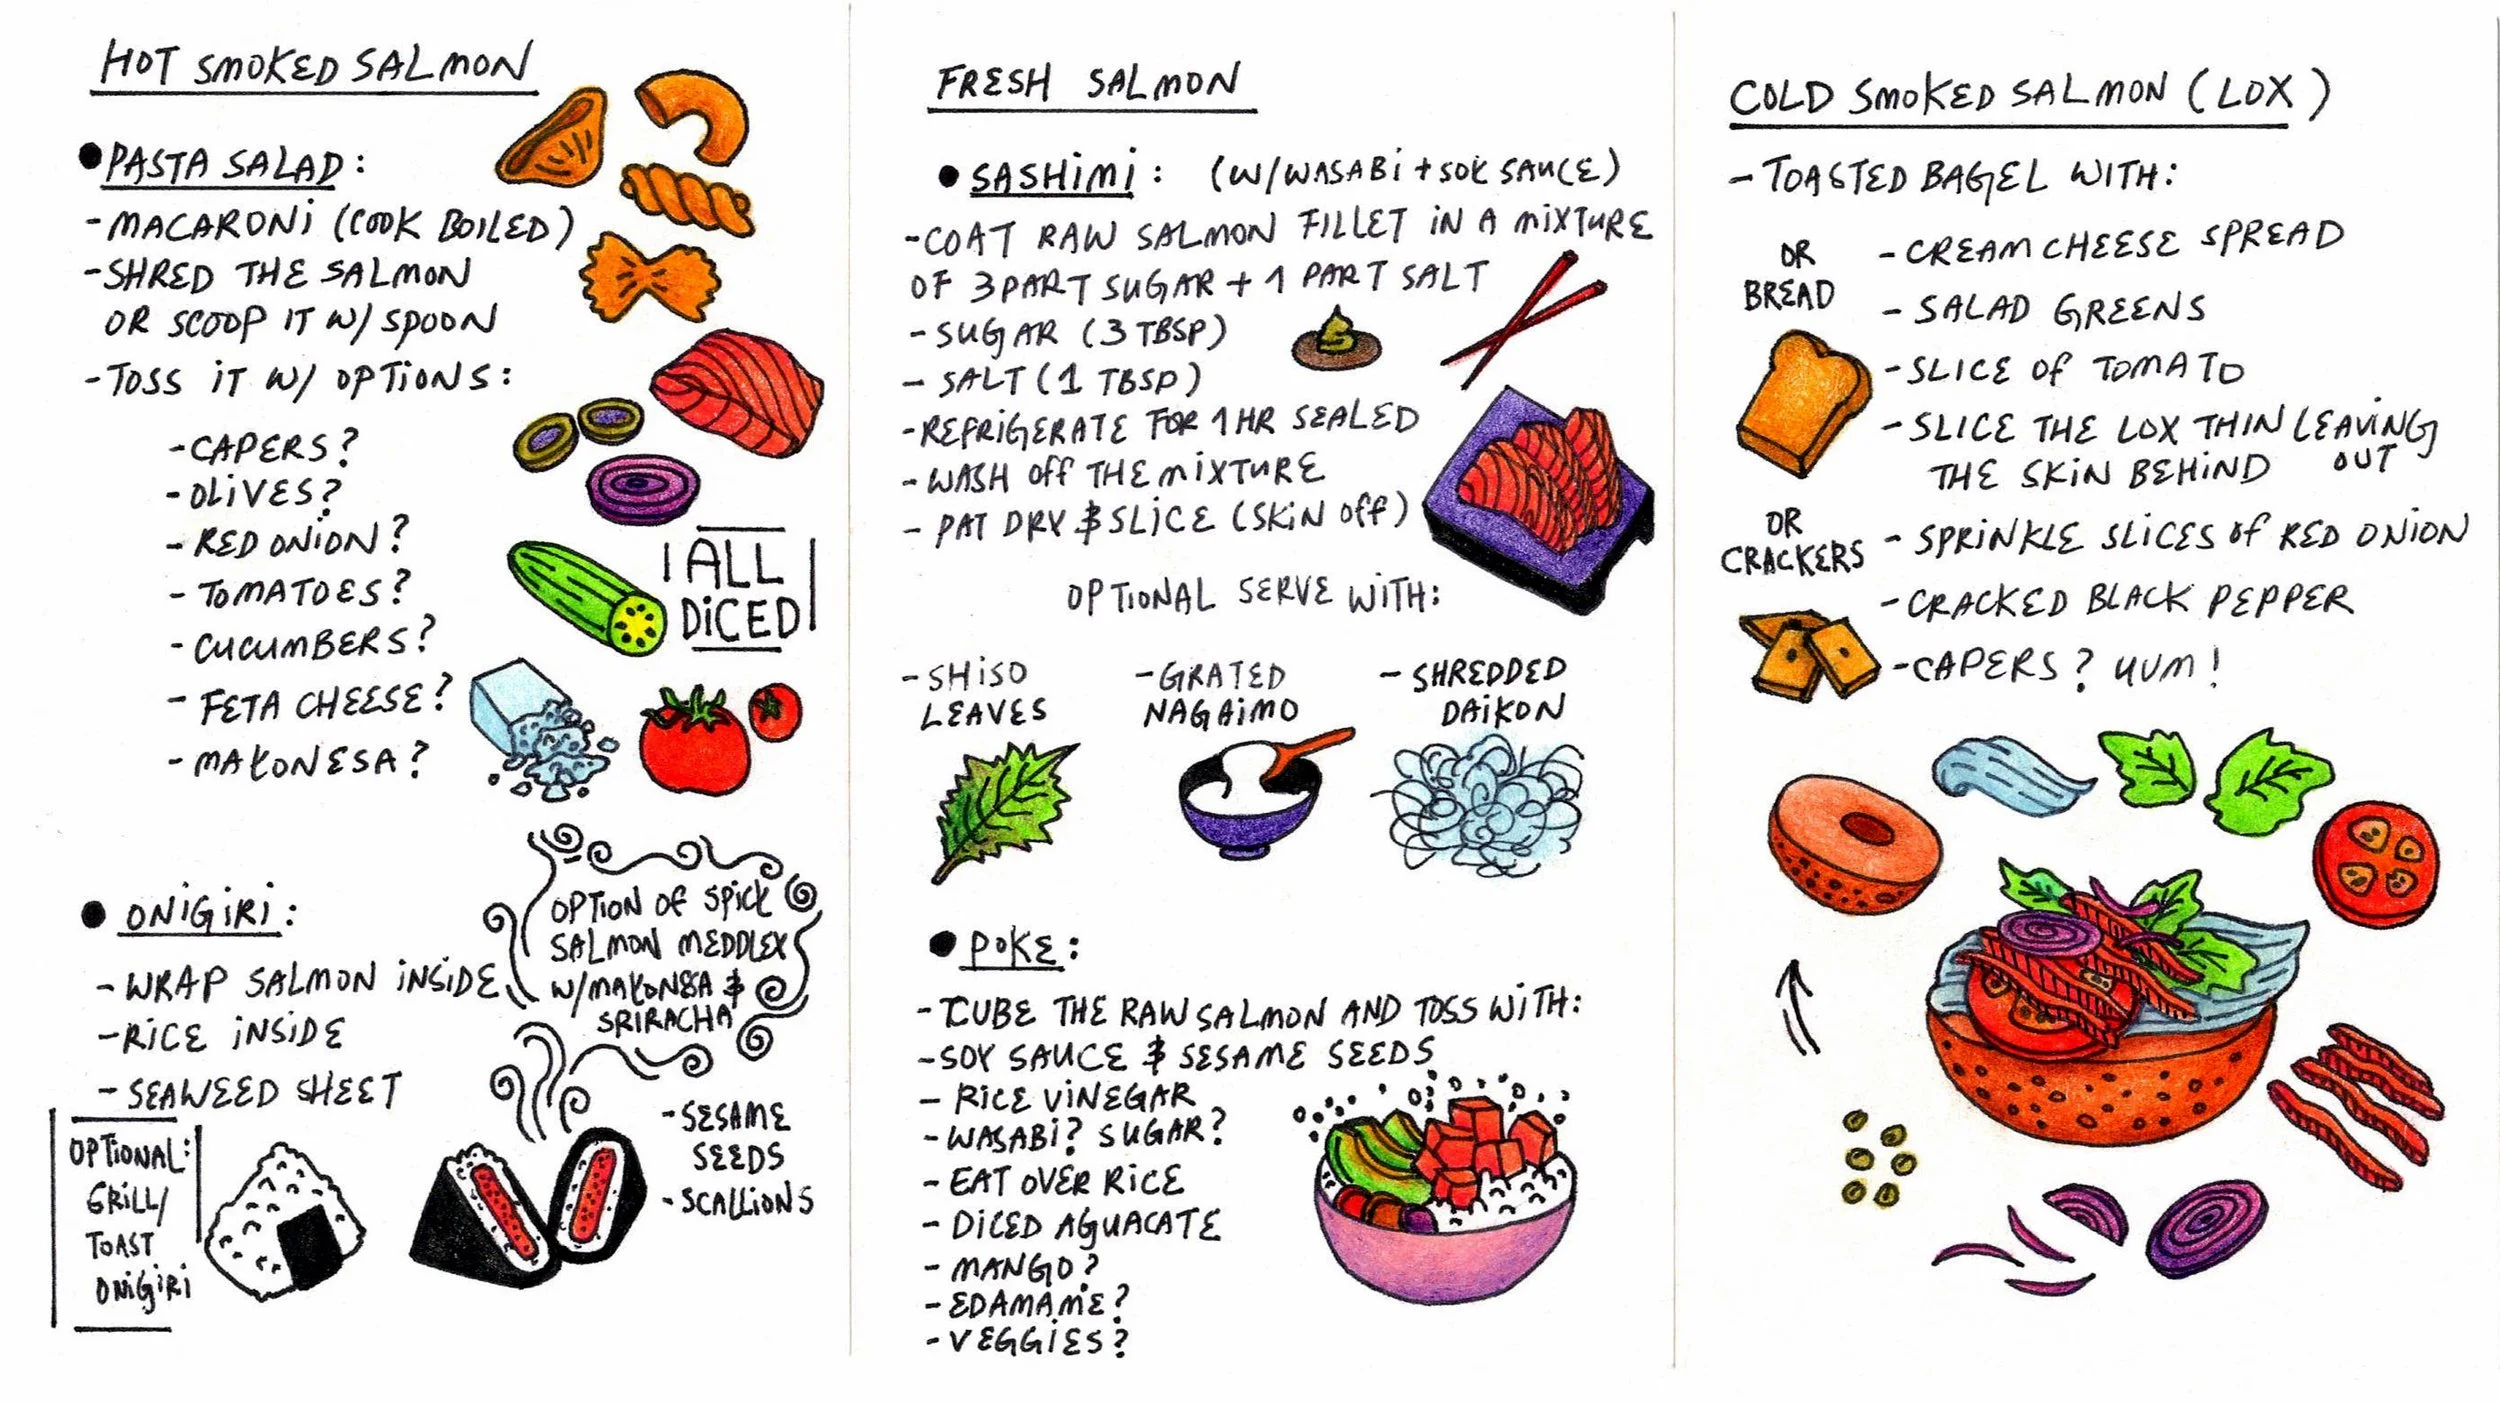 HOT SMOKED SALMON
• PASTA SALAD:
- MACARONI (COOK BOILED)
- SHRED THE SALMON
OR SCOOP IT W/ SPOON
- TOSS IT W/ OPTIONS:
- CAPERS?
- OLIVES?
- RED ONION?
- TOMATOES?
- CUCUMBERS?
- FETA CHEESE?
- MAYONESA?
ALL
DICED
• ONIGIRI:
- WRAP SALMON INSIDE
- RICE INSIDE
- SEAWEED SHEET
OPTION OF SPICY
SALMON MEDDLEY
W/MAYONESA &
SRIRACHA
OPTIONAL:
GRILL/
TOAST
ONIGIRI
- SESAME
SEEDS
- SCALLIONS
FRESH SALMON
• SASHIMI: (W/WASABI + SOY SAUCE)
- COAT RAW SALMON FILLET IN A MIXTURE
OF 3 PART SUGAR + 1 PART SALT
- SUGAR (3 TBSP)
- SALT (1 TBSP)
- REFRIGERATE FOR 1 HR SEALED
- WASH OFF THE MIXTURE
- PAT DRY & SLICE (SKIN OFF)
OPTIONAL SERVE WITH:
- SHISO
LEAVES
- GRATED
NAGAIMO
- SHREDDED
DAIKON
• POKE:
- CUBE THE RAW SALMON AND TOSS WITH:
- SOY SAUCE & SESAME SEEDS
- RICE VINEGAR
- WASABI? SUGAR?
- EAT OVER RICE
- DICED AGUACATE
- MANGO?
- EDAMAME?
- VEGGIES?
COLD SMOKED SALMON (LOX)
- TOASTED BAGEL WITH:
OR
BREAD
OR
CRACKERS
- CREAM CHEESE SPREAD
- SALAD GREENS
- SLICE OF TOMATO
- SLICE THE LOX THIN LEAVING
THE SKIN BEHIND OUT
- SPRINKLE SLICES OF RED ONION
- CRACKED BLACK PEPPER
- CAPERS? YUM!